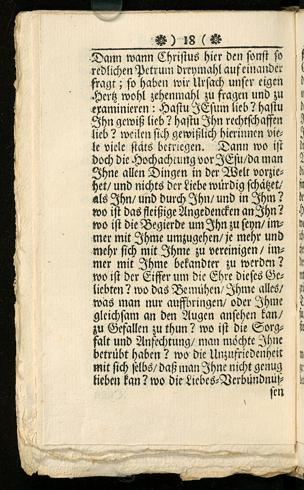 ❋ ) 18 ( ❋
Dann wann Christus hier den sonst so
redlichen Petrum dreymahl auf einander
fragt; so haben wir Ursach unser eigen
Hertz wohl zehenmahl zu fragen und zu
examinieren: Hastu JEsum lieb? hastu
Jhn gewiß lieb? hastu Jhn rechtschaffen
lieb? weilen sich gewißlich hierinnen vie-
le viele stäts betriegen. Dann wo ist
doch die Hochachtung vor JEsu/ da man
Jhne allen Dingen in der Welt vorzie-
het/ und nichts der Liebe würdig schätzet/
als Jhn/ und durch Jhn/ und in Jhm?
wo ist das fleißige Angedencken an Jhn?
wo ist die Begierde um Jhn zu seyn/ im-
mer mit Jhme umzugehen/ je mehr und
mehr sich mit Jhme zu vereinigen/ im-
mer mit Jhme bekandter zu werden?
wo ist der Eiffer um die Ehre dieses Ge-
liebten? wo das Bemühen/ Jhme alles/
was man nur auffbringen/ oder Jhme
gleichsam an den Augen ansehen kan/
zu Gefallen zu thun? wo ist die Sorg-
falt und Anfechtung/ man möchte Jhne
betrübt haben? wo die Unzufriedenheit
mit sich selbs/ daß man Jhne nicht genug
lieben kan? wo die Liebes-Verbündnüs-
sen